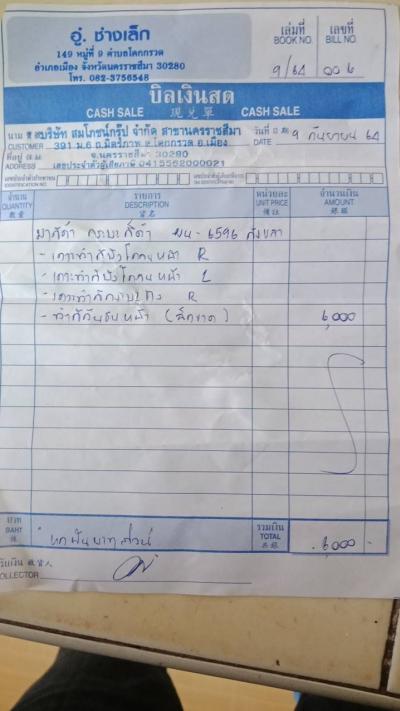 อู่. ช่างเล็ก
149 หมู่ที่ 9 ตำบลโคกกรวด
อำเภอเมือง จังหวัดนครราชสีมา 30280
โทร. 082-3756548
เล่มที่ BOOK NO. 9/64
เลขที่ BILL NO. 006
บิลเงินสด
CASH SALE 現兑單 CASH SALE
นาม บริษัท สมโภชน์กรุ๊ป จำกัด สาขานครราชสีมา
วันที่ DATE 9 กันยายน 64
CUSTOMER 391 ม.6 ถ.มิตรภาพ ต.โคกกรวด อ.เมือง
ที่อยู่ จ.นครราชสีมา 30280
ADDRESS เลขประจำตัวผู้เสียภาษี 0415562000021
จำนวน QUANTITY 數量
รายการ DESCRIPTION 貨名
หน่วยละ UNIT PRICE 價註
จำนวนเงิน AMOUNT 銀碼
6596 สงขลา
- เคาะทำสีบังโคลนหน้า R
- เคาะทำสีบังโคลนหน้า L
- R
- ทำสีกันชนหน้า 6,000
บาท BAHT 銖
หกพันบาทถ้วน
รวมเงิน TOTAL 共銀
6,000 -
ผู้รับเงิน 收貨人
COLLECTOR